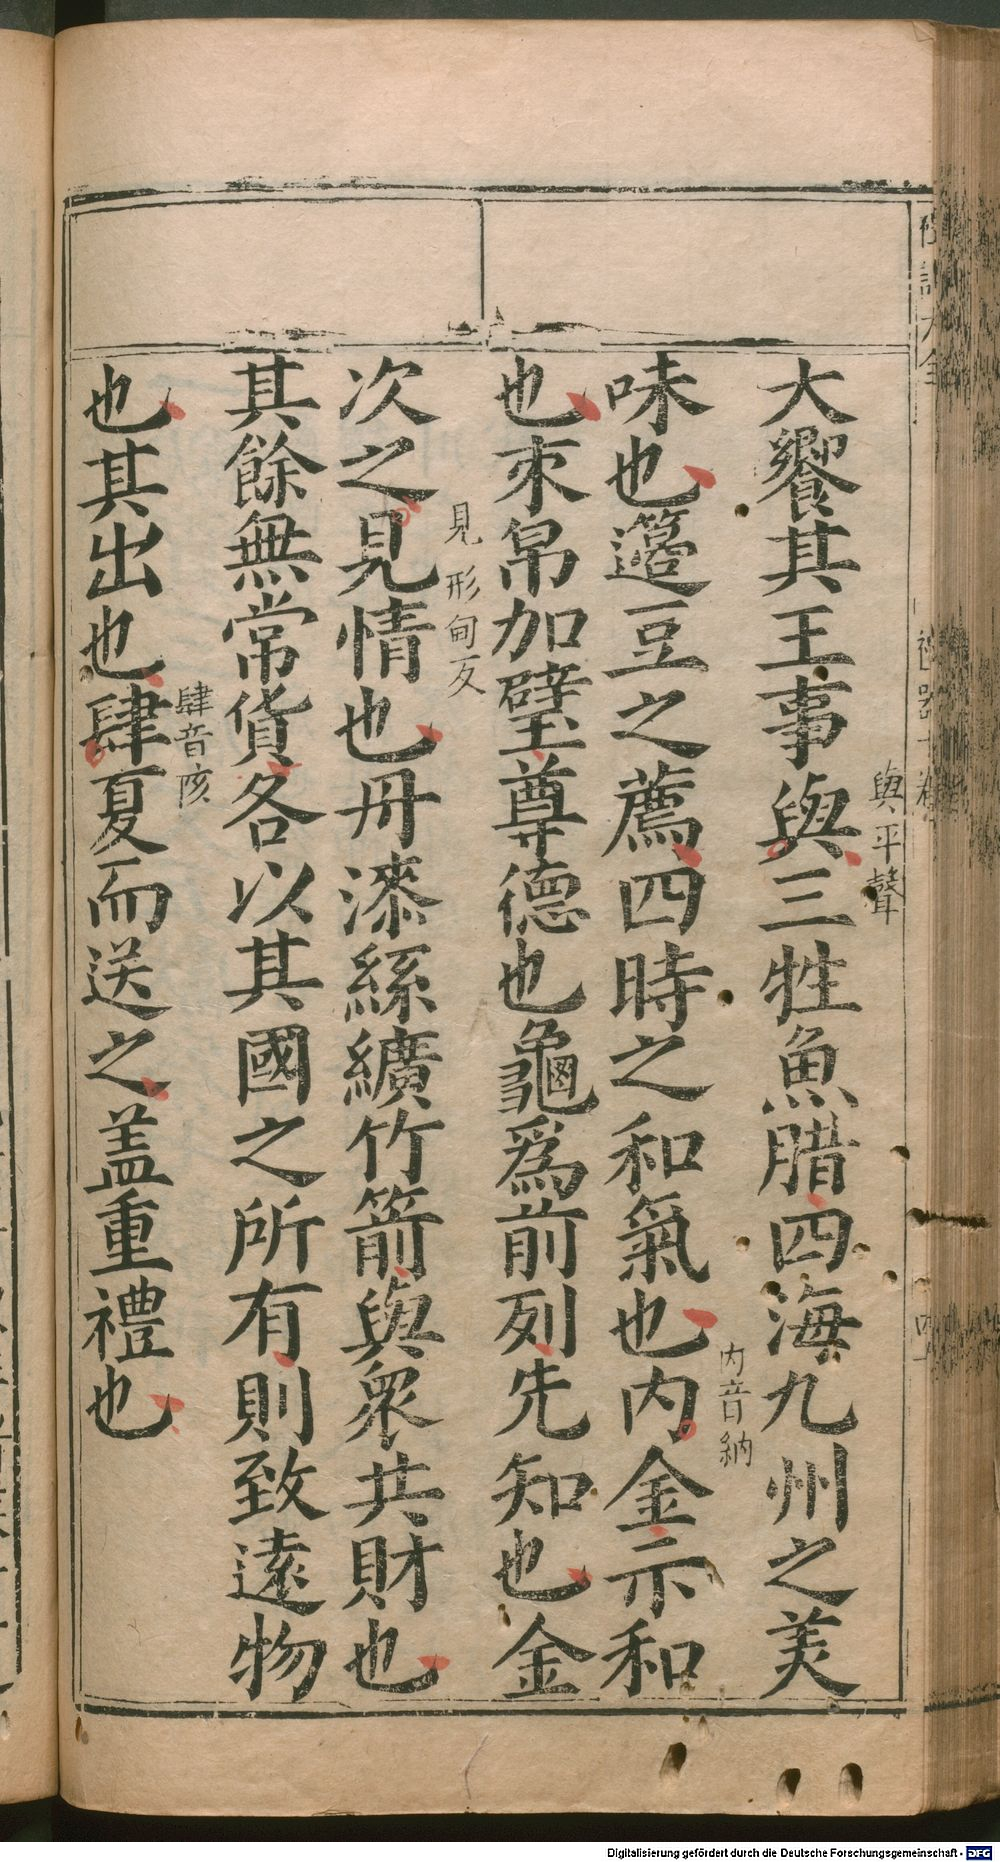 大饗其王事與三牲魚腊四海九州之美
與平聲
味也籩豆之薦四時之和氣也內金示和
內音納
也束帛加璧尊德也龜爲前列先知也金
次之見情也丹漆絲纊竹箭與眾共財也
見形甸反
其餘無常貨各以其國之所有則致遠物
也其出也肆夏而送之盖重禮也
肆音陔
Digitalisierung gefördert durch die Deutsche Forschungsgemeinschaft - DFG